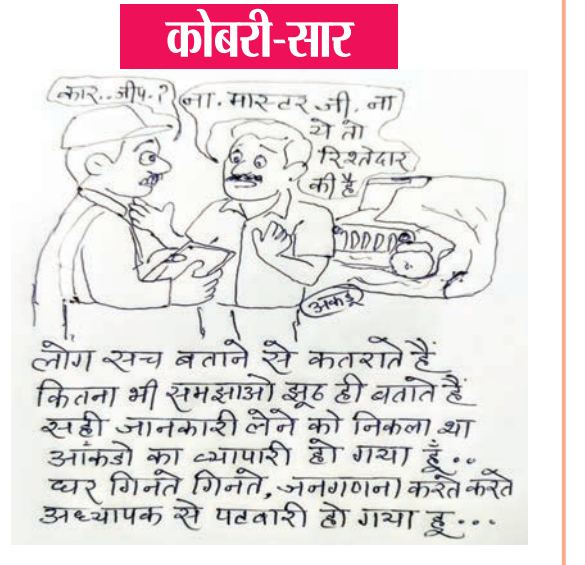 कोबरी-सार
कार..जीप.?
ना. मास्टर जी. ना
ये तो
रिश्तेदार
की है
अकडू
लोग सच बताने से कतराते हैं
कितना भी समझाओ झूठ ही बताते हैं
सही जानकारी लेने को निकला था
आंकडो का व्यापारी हो गया हूँ..
घर गिनते गिनते, जनगणना करते करते
अध्यापक से पटवारी हो गया हू...